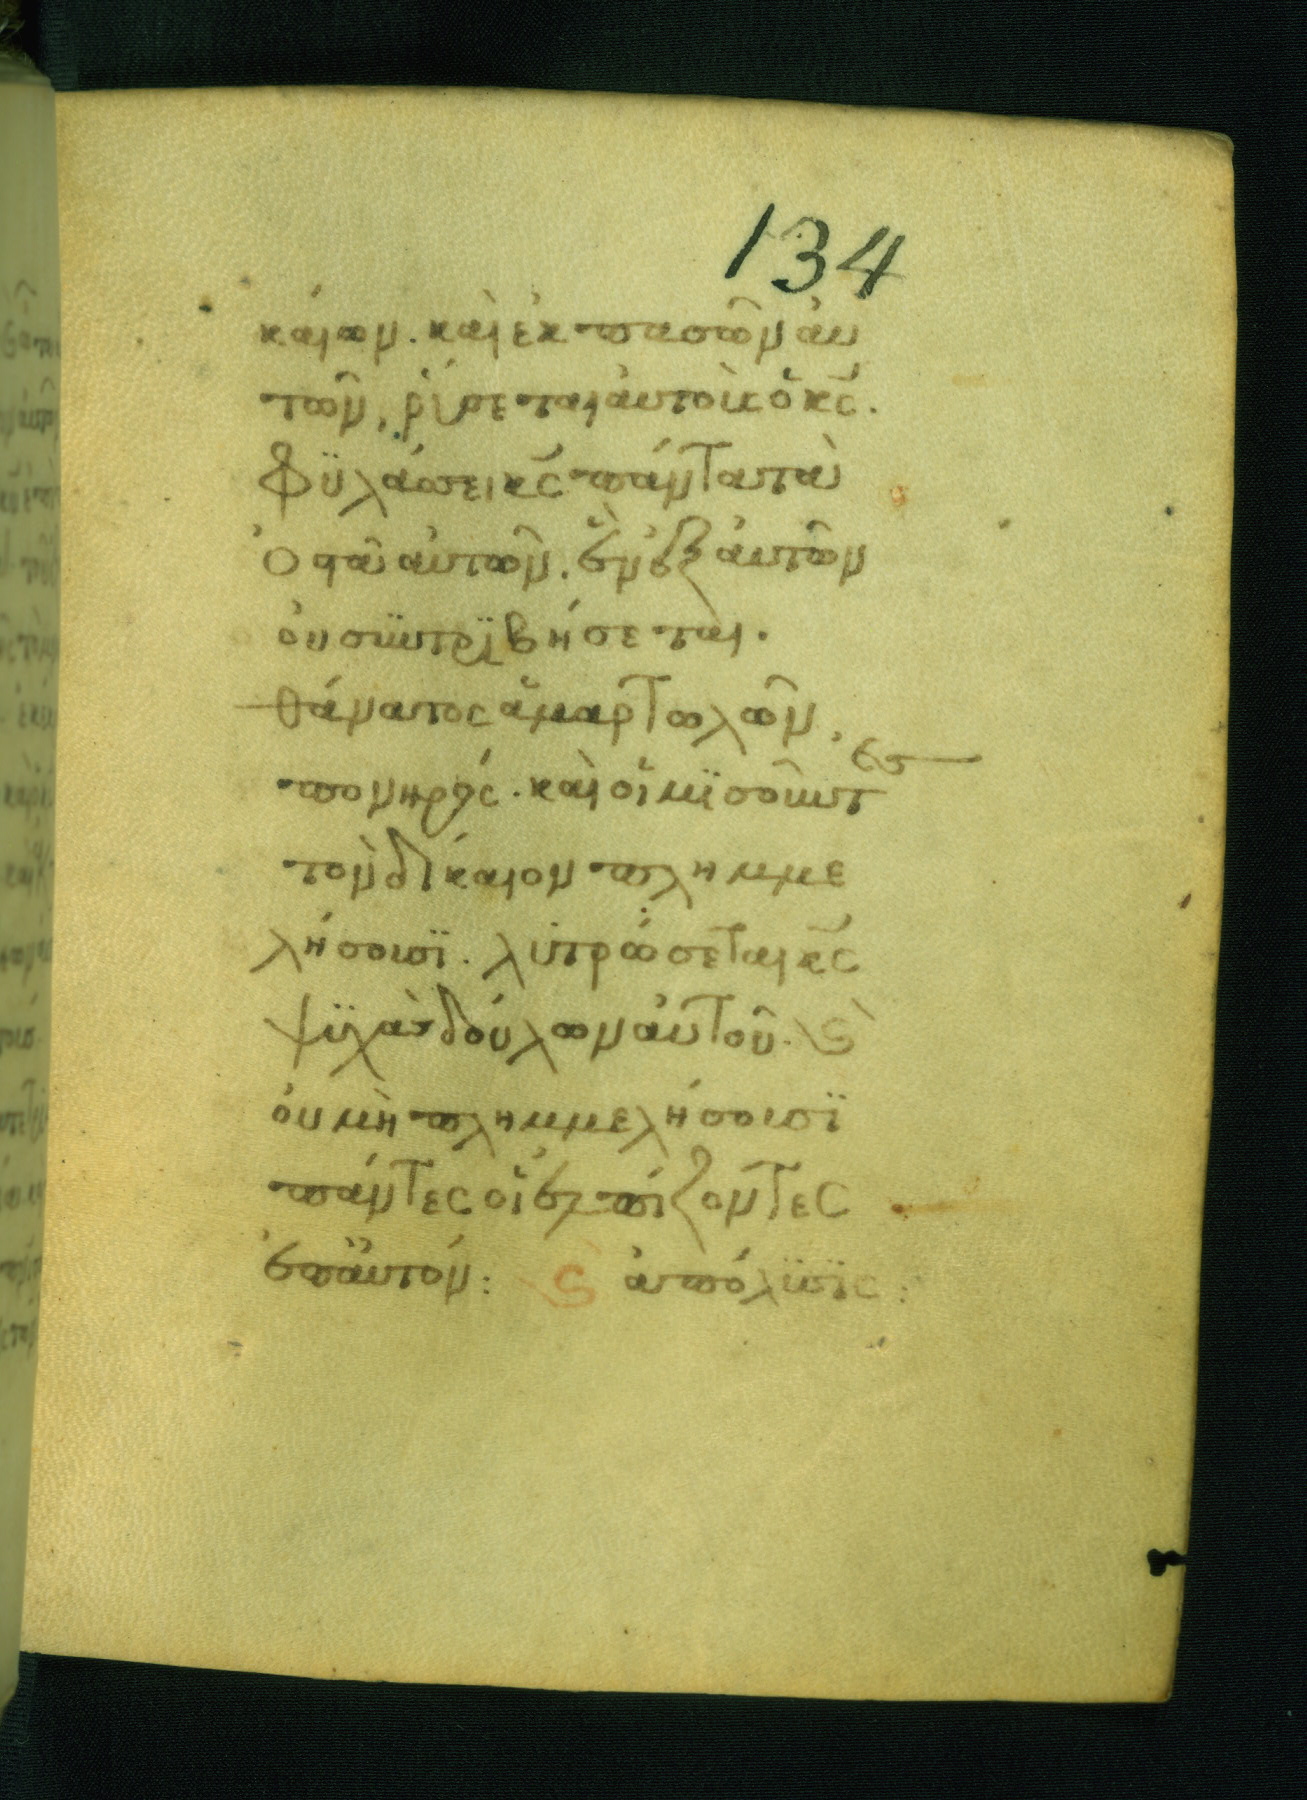 134
καίων. καὶ ἐκ πασῶν αὐ
τῶν, ῥύσεται αὐτοὺς ὁ κς.
Φϋλάσσει κς πάντα τὰ
ὀστᾶ αὐτῶν. ἓν ἐξ αὐτῶν
οὐ συντρϊβήσεται.
θάνατος ἁμαρτωλῶν,
πονηρός. καὶ οἱ μϊσοῦντες
τὸν δίκαιον πλημμε
λήσουσϊ. λυτρώσεται κς
ψϋχὰς δούλων αὐτοῦ. Ϛ
οὐ μὴ πλημμελήσουσϊ
πάντες οἱ ἐλπίζοντες
ἐπ αὐτόν: Ϛ ἀπόλυσϊς: